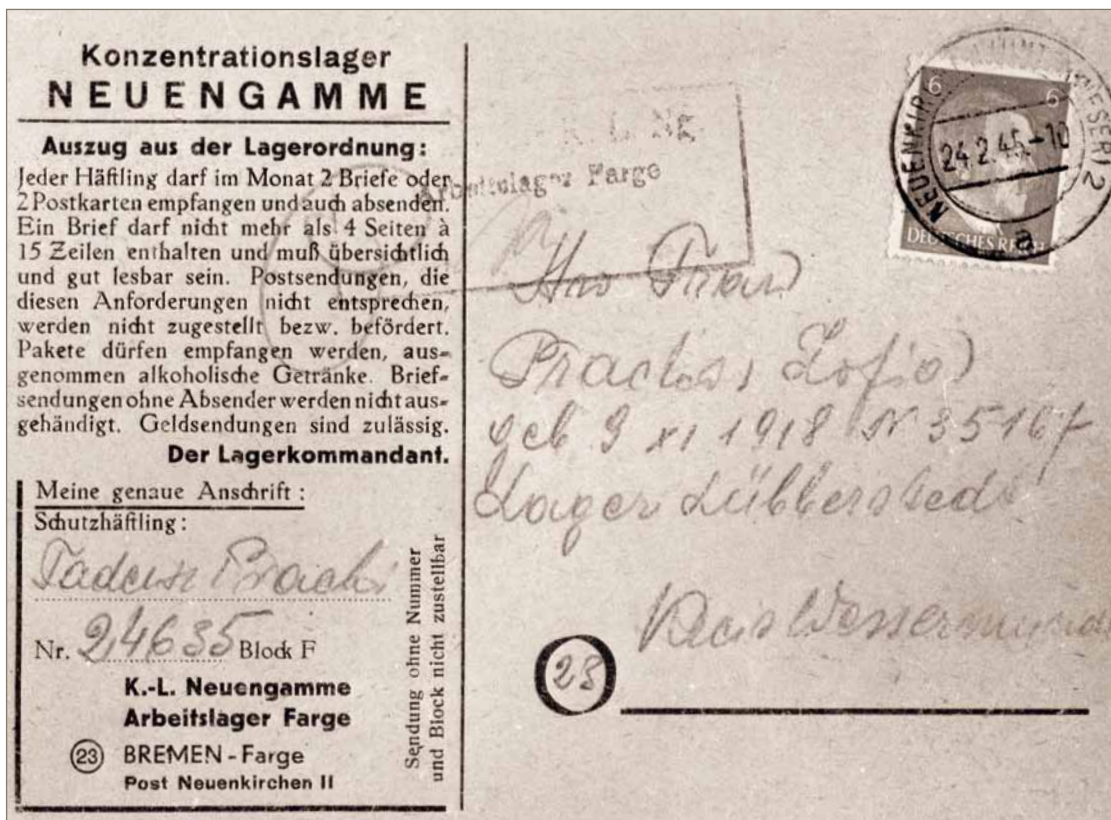 Konzentrationslager
NEUENGAMME
Auszug aus der Lagerordnung:
Jeder Häftling darf im Monat 2 Briefe oder
2 Postkarten empfangen und auch absenden.
Ein Brief darf nicht mehr als 4 Seiten à
15 Zeilen enthalten und muß übersichtlich
und gut lesbar sein. Postsendungen, die
diesen Anforderungen nicht entsprechen,
werden nicht zugestellt bezw. befördert.
Pakete dürfen empfangen werden, aus=
genommen alkoholische Getränke. Brief=
sendungen ohne Absender werden nicht aus=
gehändigt. Geldsendungen sind zulässig.
Der Lagerkommandant.
Meine genaue Anschrift:
Schutzhäftling:
Tadeusz
Nr. 24635 Block F
K.-L. Neuengamme
Arbeitslager Farge
23 BREMEN-Farge
Post Neuenkirchen II
Sendung ohne Nummer
und Block nicht zustellbar
Arbeitslager Farge
6 6
DEUTSCHES REICH
24.2.45-10
(WESER) 2
a
Zofia
geb 9 XI 1918 N 35167
Lager Lübberstedt
23